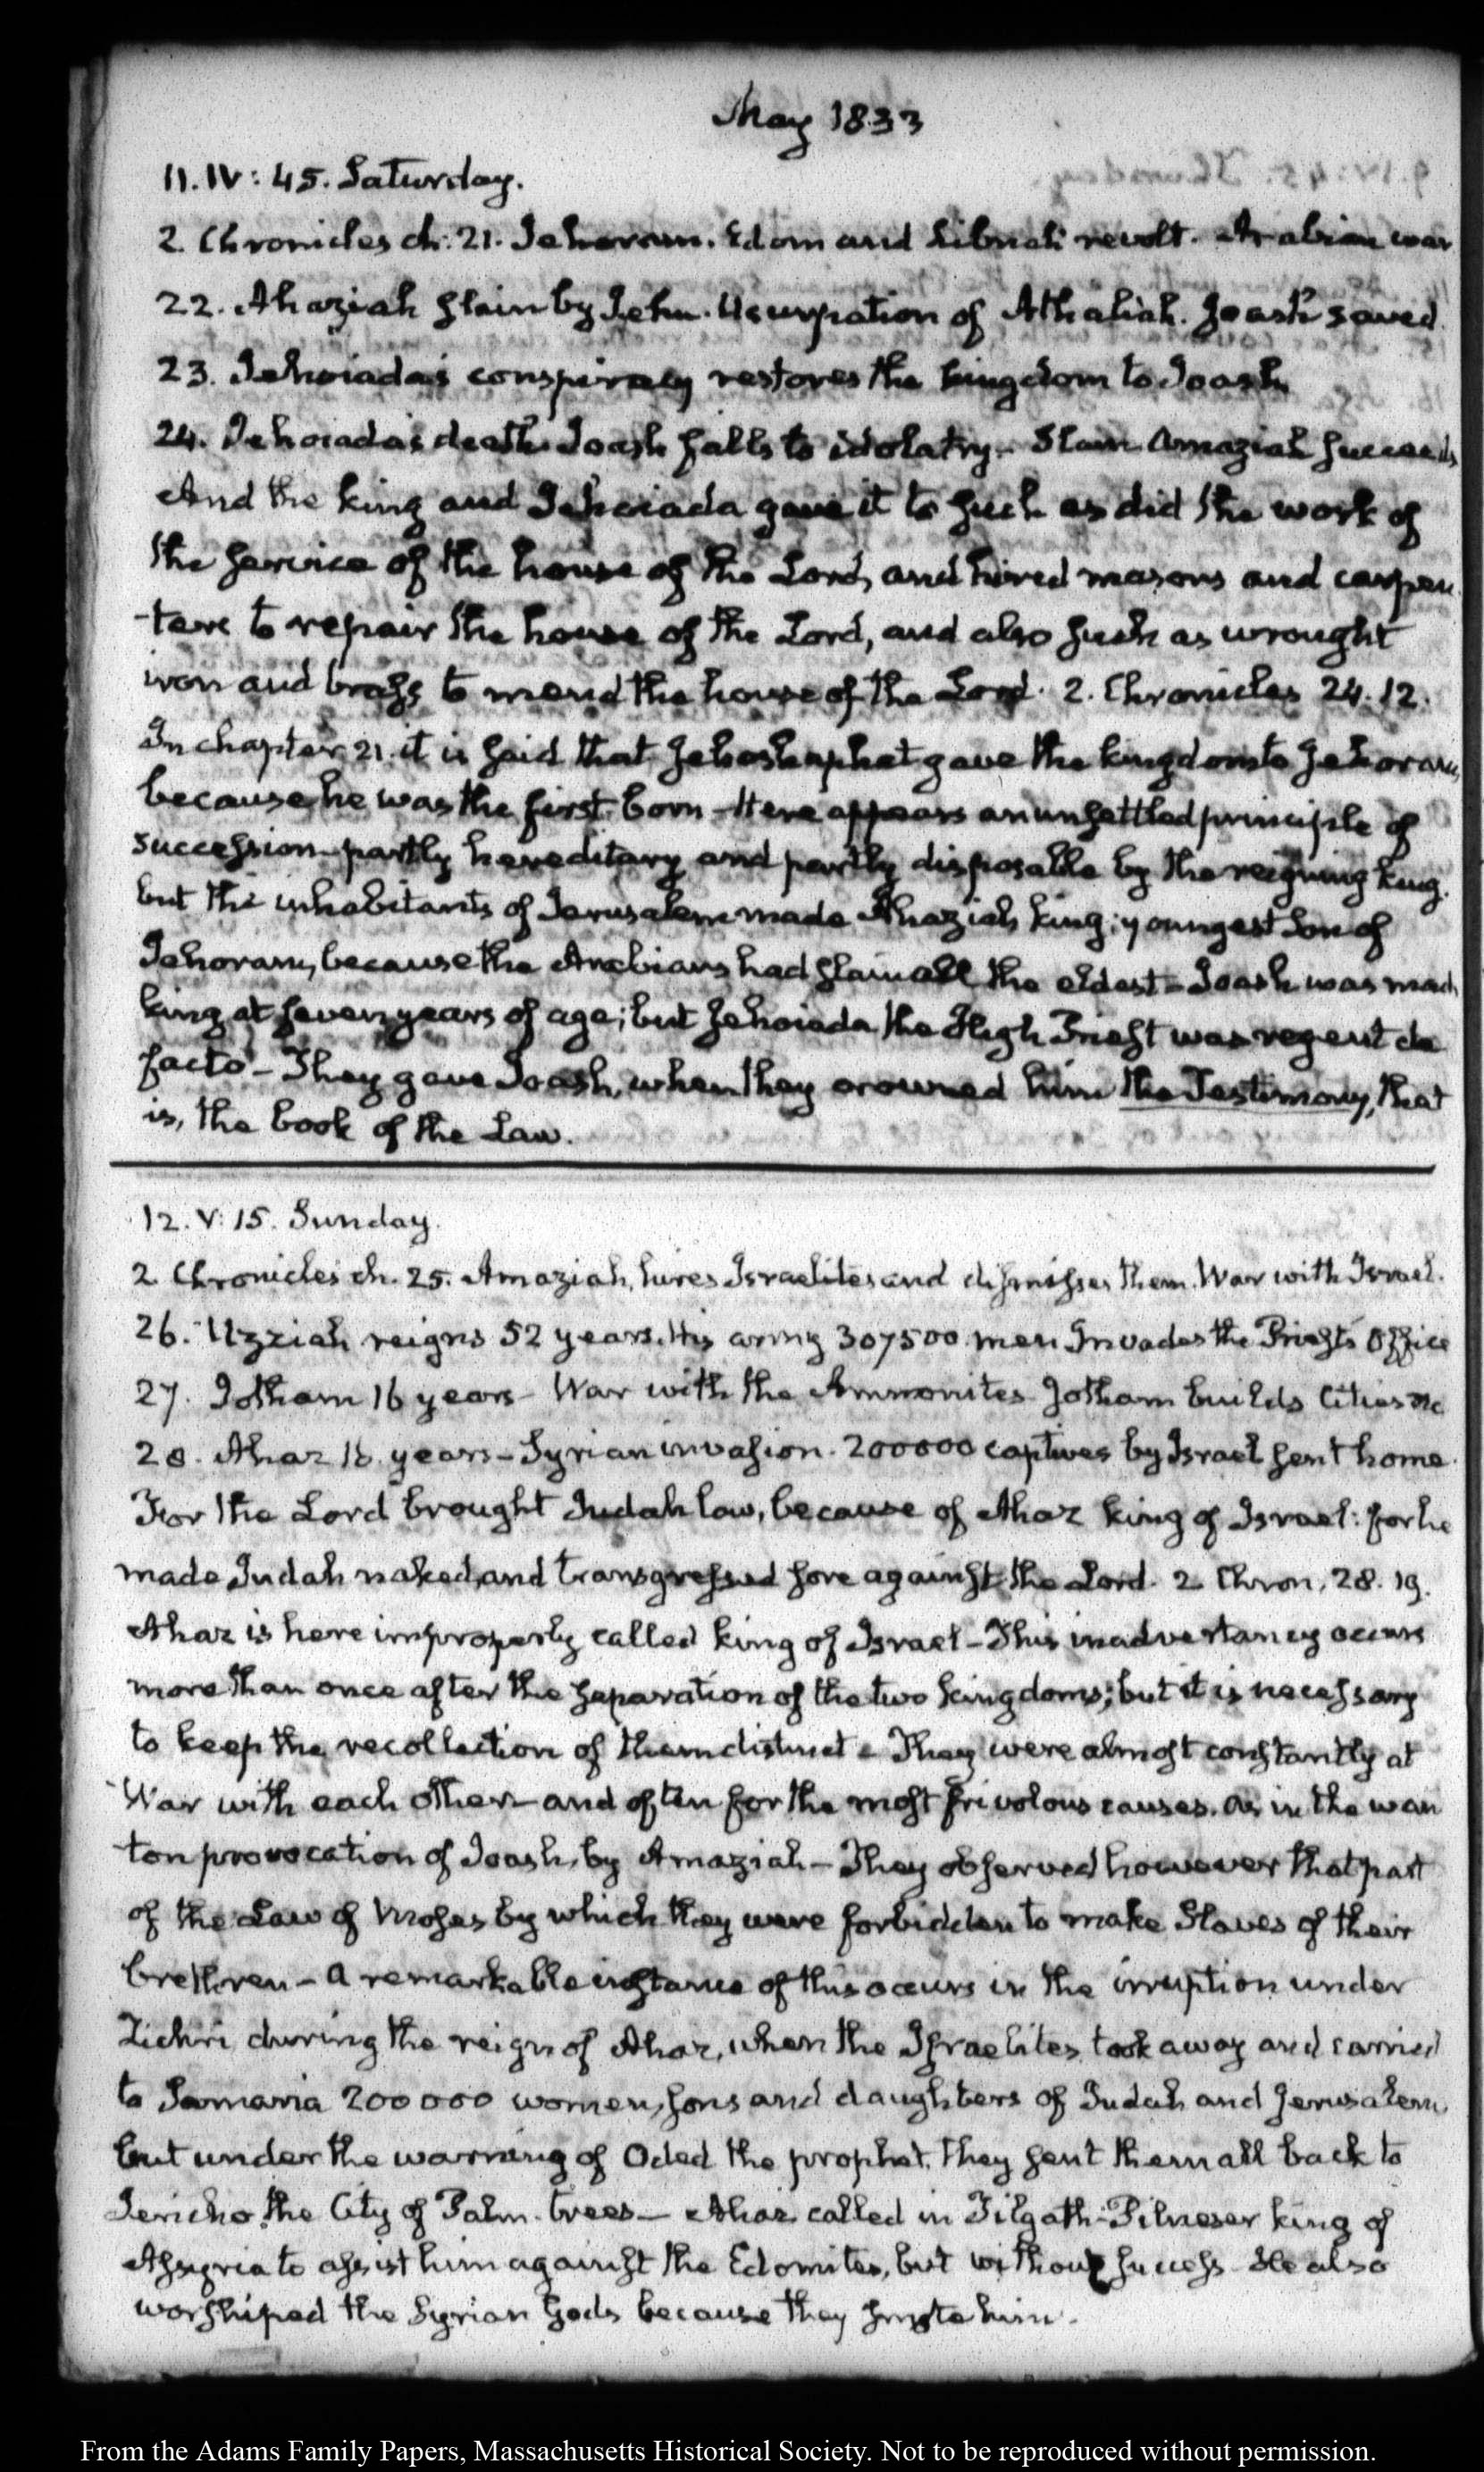 May 1833
11. IV: 45. Saturday.
2. Chronicles ch: 21. Jehoram. Edom and Libnah revolt. Arabian war
22. Ahaziah slain by Jehu. Usurpation of Athaliah. Joash saved.
23. Jehoiada's conspiracy restores the kingdom to Joash
24. Jehoiada's death. Joash falls to idolatry. Slain Amaziah succeeds
And the king and Jehoiada gave it to such as did the work of
the service of the house of the Lord, and hired masons and carpen
-ters to repair the house of the Lord, and also such as wrought
iron and brass to mend the house of the Lord. 2. Chronicles 24.12.
In chapter 21. it is said that Jehoshaphat gave the kingdom to Jehoram,
because he was the first-born - Here appears an unsettled principle of
succession - partly hereditary and partly disposable by the reigning king.
but the inhabitants of Jerusalem made Ahaziah king; youngest Son of
Jehoram, because the Arabians had slain all the eldest - Joash was made
king at seven years of age; but Jehoiada the High Priest was regent de
facto - They gave Joash, when they crowned him the Testimony, that
is, the book of the Law.
12. V: 15. Sunday.
2 Chronicles ch. 25. Amaziah, hires Israelites and dismisses them. War with Israel.
26. Uzziah reigns 52 years. His army 307500 men Invades the Priests Office
27. Jotham 16 years - War with the Ammonites Jotham builds Cities &c
28. Ahaz 16 years - Syrian invasion. 200000 captives by Israel sent home.
For the Lord brought Judah low, because of Ahaz king of Israel: for he
made Judah naked, and transgressed sore against the Lord. 2 Chron, 28. 19.
Ahaz is here improperly called king of Israel - This inadvertancy occurs
more than once after the separation of the two kingdoms; but it is necessary
to keep the recollection of them distinct - They were almost constantly at
War with each other - and often for the most frivolous causes. As in the wan
ton provocation of Joash, by Amaziah - They observed however that part
of the Law of Moses by which they were forbidden to make Slaves of their
brethren - A remarkable instance of this occurs in the irruption under
Zichri during the reign of Ahaz, when the Israelites took away and carried
to Samaria 200000 women, sons and daughters of Judah and Jerusalem,
but under the warning of Oded the prophet. they sent them all back to
Jericho the City of Palm-trees - Ahaz called in Tilgath-Pilneser king of
Assyria to assist him against the Edomites, but without success - He also
worshiped the Syrian Gods because they smote him.
From the Adams Family Papers, Massachusetts Historical Society. Not to be reproduced without permission.